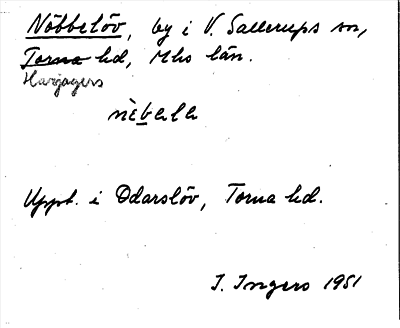 Nöbbelöv, by i V. Sallerups sn,
Torna hd, Mhs län.
Harjagers
nèbala
Uppt. i Odarslöv, Torna hd.
I. Ingers 1951